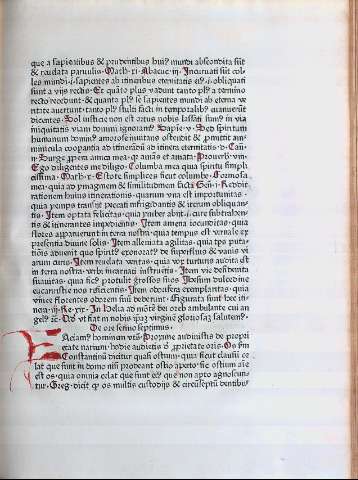 que a sapientibus & prudentibus huiꝰ mundi abscondita sūt
& reuelata paruulis. Math. xi. Abacuc. iij. Incuruati sūt col-
les mundi. i. sapientes ab itineribus eternitatis eiꝰ. i. obliquati
sunt a vijs rectis. Et quāto plus vadunt tanto plꝰ a termino
recto recedunt. & quanto plꝰ se sapientes mundi ab eterna ve
ritate auertunt. tanto plꝰ stulti facti in temporalibꝰ euanuerūt
dicentes. Sol iusticie non est ortus nobis lassati sumꝰ in via
iniquitatis viam domini ignorantes. Sapie. v. Sed spiritum
humanum dominꝰ amorose inuitans ostendit & promittit
oportuna ad itinerandū ad itinera eternitatis. d. Can.
ij. Surge propera amica mea. quia amans et amata. Prouerb. viij.
Ego diligentes me diligo. Columba mea quia spiritu simpli
cissima. Math. x. Estote simplices sicut columbe. Formosa
mea. quia ad ymaginem & similitudinem facta Gen. i. Reddit
rationem huius itinerationis. quarum vna est importunitas.
quia yemps transijt peccati infrigidantis & iterum obliquan-
tis. Item optata felicitas. quia ymber abijt. i. cure subtrahen-
tis & itinerantes impedientis. Item amena iocunditas. quia
flores apparuerunt in terra nostra. quia tempus est vernale ex
presentia diuine solis. Item alleuiata agilitas. quia tempus puta-
tionis aduenit quo spiritꝰ exoneratꝰ de superfluis & vanis vi
arum curis. Item reuelata veritas. quia vox turturis audita est
in terra nostra. verbi incarnati instructis. Item vie desiderata
suauitas. quia ficꝰ protulit grossos suos Ihesum dulcedine
eucaristie nos reficientis. Item obtusera exemplaritas. quia
vinee florentes odorem suū dederunt. Figurata sunt hec iti-
nera. iij. Re. xix. In Helia ad mōtē dei oreb ambulante cui an
gelꝰ &c. Qd vt fiat in nobis ipsaꝫ virginē gloriosaꝫ salutemꝰ.
De ore sermo septimus.
Faciamꝰ hominem &c. Proxime audiuistis de propri
etate narium. hodie audietis d proprietate oris. Os em
Constantinū dicitur quasi ostium. quia sicut clausū ce
lat que sunt in domo nisi prodeant ostio aperto. sic ostium aīe
est os. quia omnia celat que sunt eius que non apto agnoscun
tur. Greg. dicit quod os multis custodijs & circūseptū dentibus